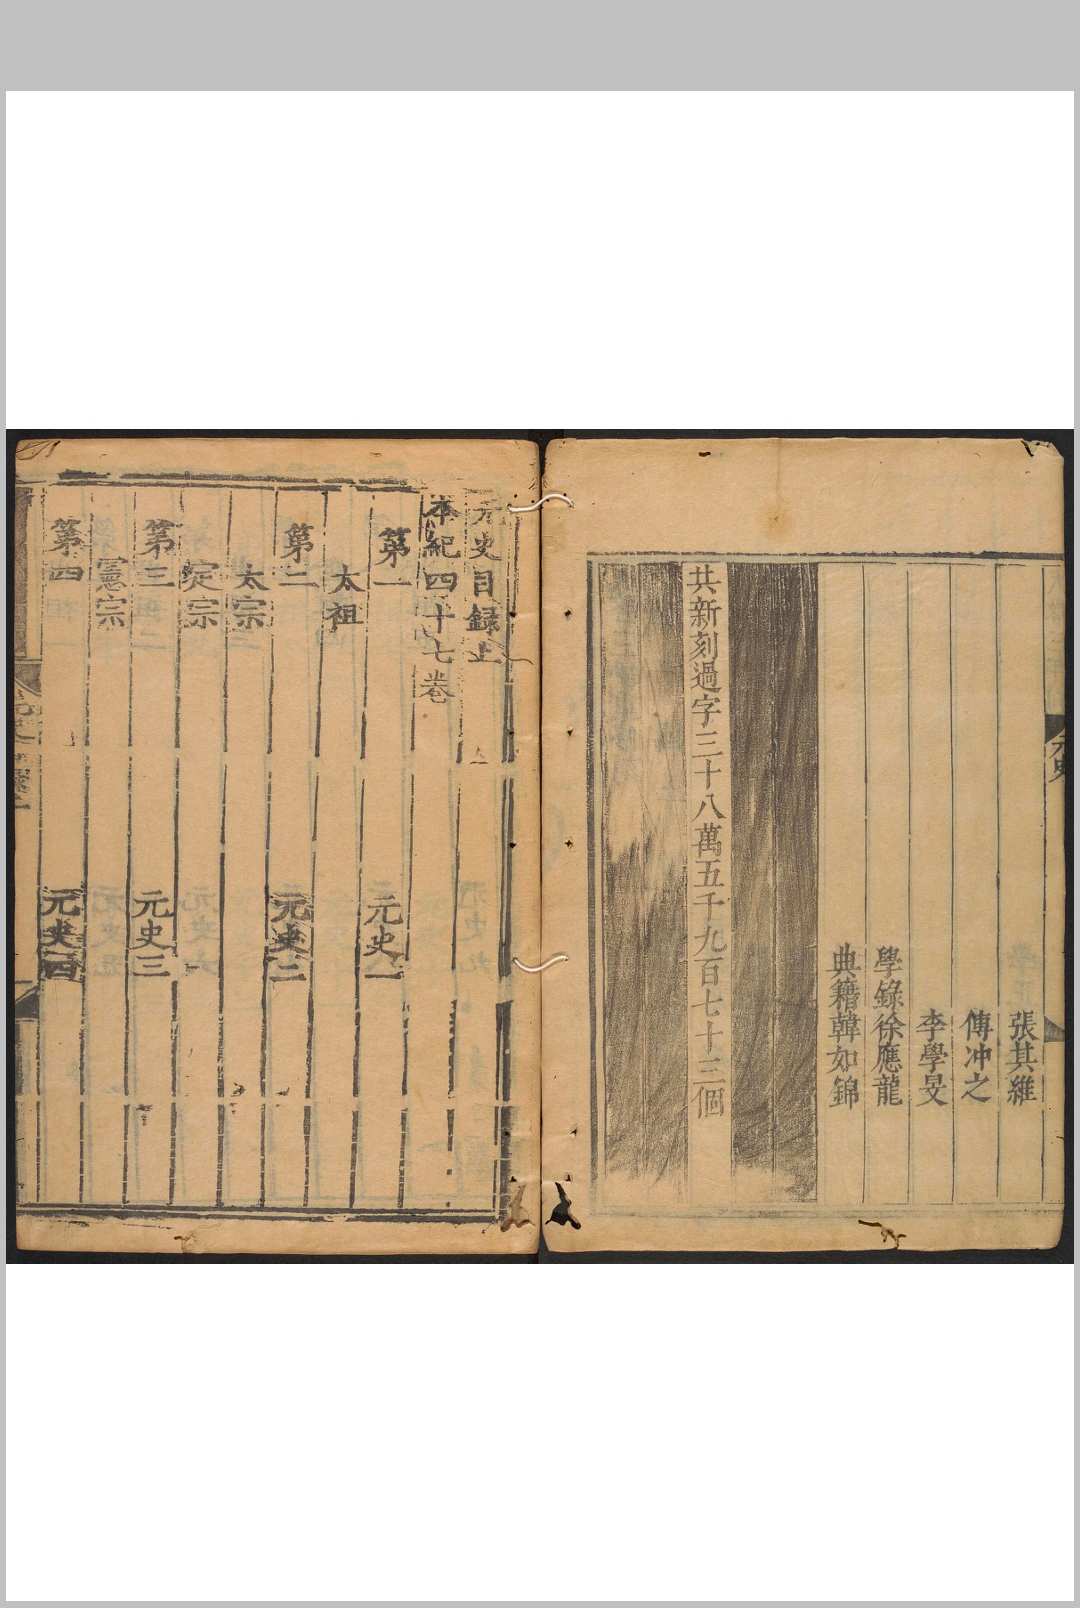 張其維
傅冲之
李學旻
學錄徐應龍
典籍韓如錦
共新刻過字三十八萬五千九百七十三個
元史
元史目録上
本紀四十七卷
第一 元史一
太祖
第二 元史二
太宗
定宗
第三 元史三
憲宗
第四 元史四